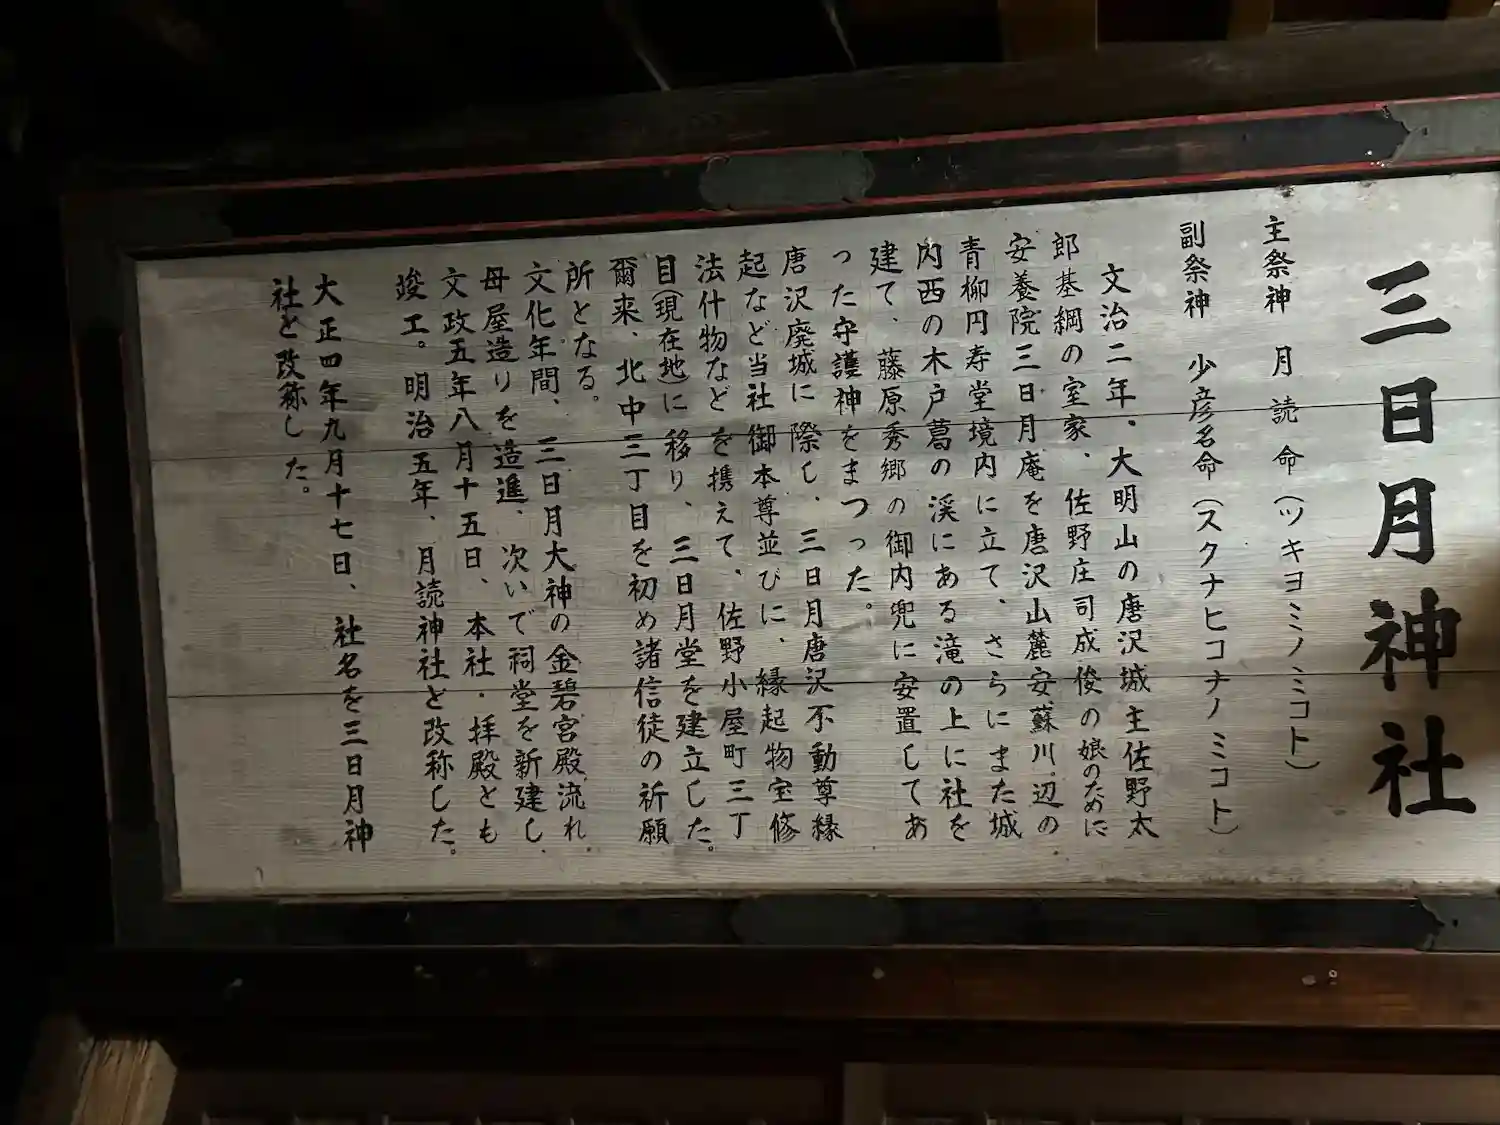 三日月神社
主祭神　月読命（ツキヨミノミコト）
副祭神　少彦名命（スクナヒコナノミコト）
文治二年、大明山の唐沢城主佐野太
郎基綱の室家、佐野庄司成俊の娘のために
安養院三日月庵を唐沢山麓安蘇川辺の
青柳円寿堂境内に立て、さらにまた城
内西の木戸葛の渓にある滝の上に社を
建て、藤原秀郷の御内兜に安置してあ
った守護神をまつった。
唐沢廃城に際し、三日月唐沢不動尊縁
起など当社御本尊並びに、縁起物宝修
法什物などを携えて、佐野小屋町三丁
目（現在地）に移り、三日月堂を建立した。
爾来、北中三丁目を初め諸信徒の祈願
所となる。
文化年間、三日月大神の金碧宮殿流れ
母屋造りを造進、次いで祠堂を新建し、
文政五年八月十五日、本社・拝殿とも
竣工。明治五年、月読神社と改称した。
大正四年九月十七日、社名を三日月神
社と改称した。